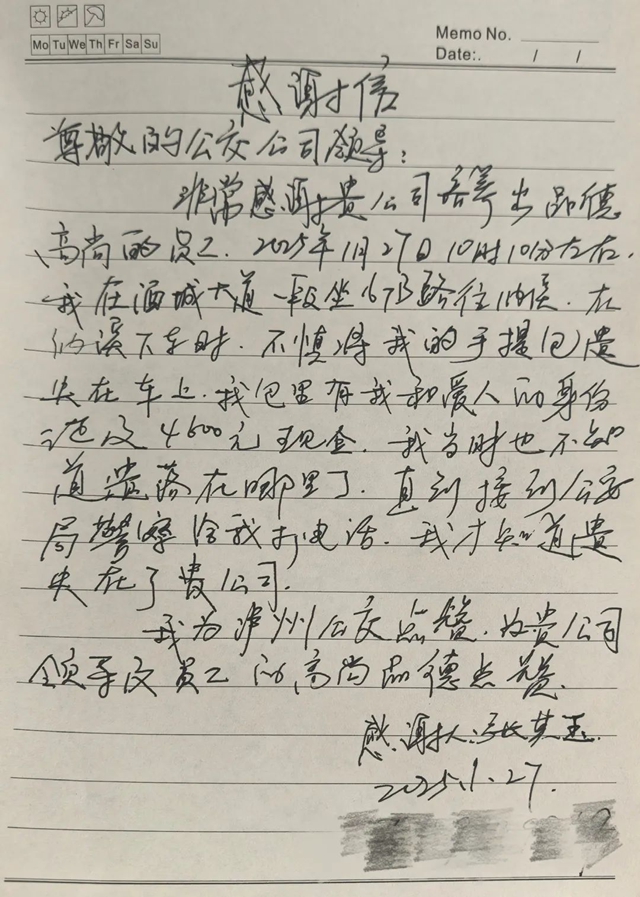 Mo Tu We Th Fr Sa Su
Memo No.
Date:. / /
感谢信
尊敬的公交公司领导:
非常感谢贵公司培养出品德
高尚的员工.2025年1月27日10时10分左右.
我在酒城大道一段坐67B路往纳溪.在
纳溪下车时.不慎将我的手提包遗
失在车上.我包里有我和爱人的身份
证及4600元现金.我当时也不知
道遗落在哪里了.直到接到公安
局警察给我打电话.我才知道遗
失在了贵公司.
我为泸州公交点赞.为贵公司
领导及员工的高尚品德点赞.
感谢人:张其玉.
2025.1.27.